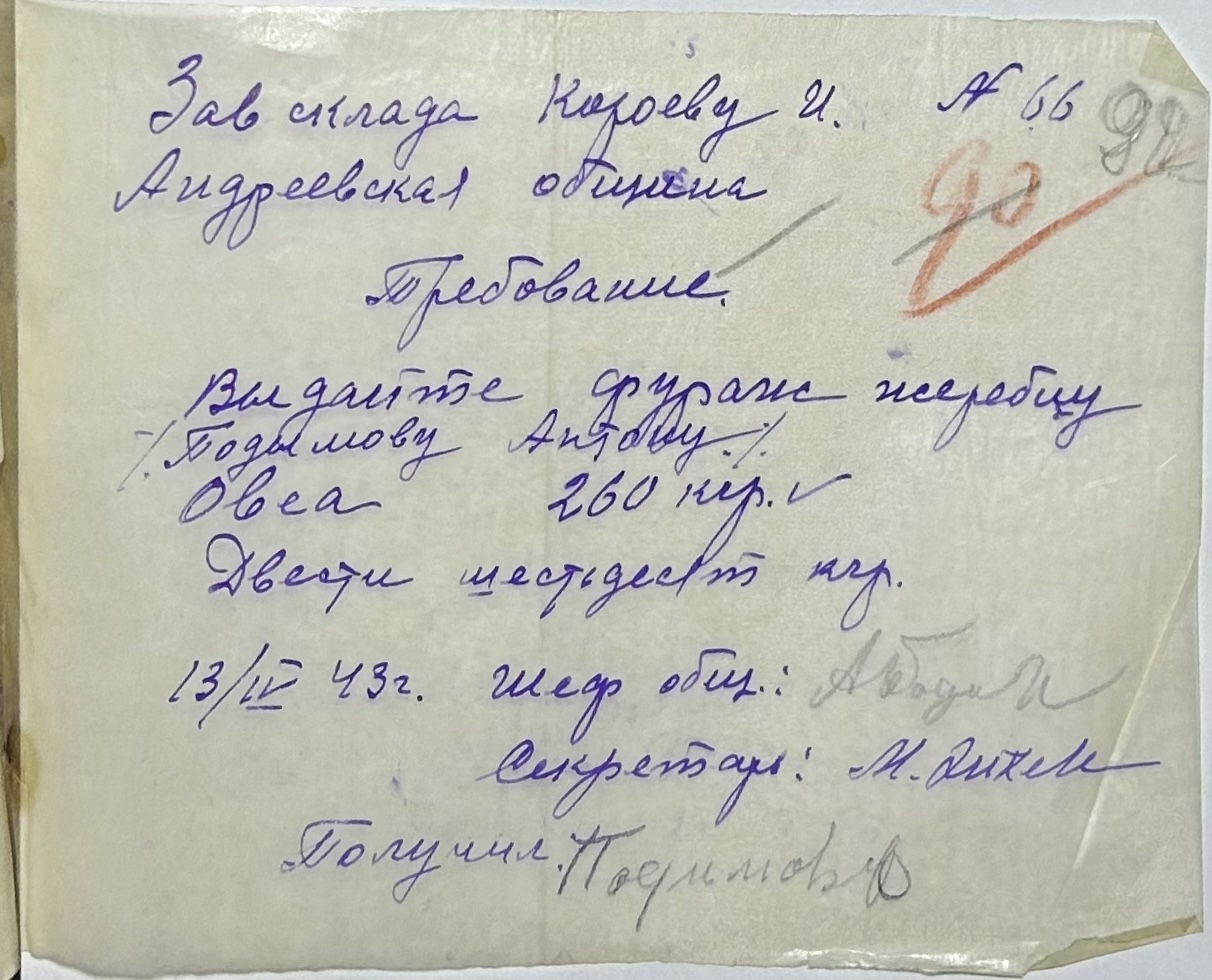 Зав склада Короеву И. № 66
90
Андреевская община
Требование.
Выдайте фураж жеребцу
/Подымову Антону/
Овса 260 кгр.
Двести шестьдесят кгр.
13/IV 43г. Шеф общ.:
Секретарь: М.
Получил. Подимов